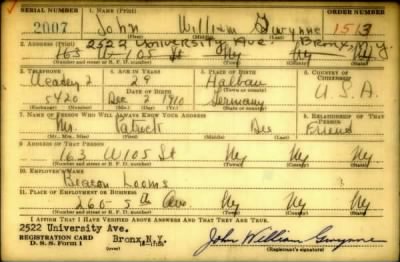 SERIAL NUMBER 1. NAME (Print) ORDER NUMBER
2007 John William Gwynne 1513
(First) (Middle) (Last)
2. ADDRESS (Print) 2522 University Ave. Bronx, N.Y.
163 W-105 St Ny Ny Ny
(Number and street or R. F. D. number) (Town) (County) (State)
3. TELEPHONE 4. AGE IN YEARS 5. PLACE OF BIRTH 6. COUNTRY OF CITIZENSHIP
Academy 2 29 Halbau
DATE OF BIRTH (Town or county) U.S.A.
420 Dec 3 1910 Germany
(Exchange) (No.) (Mo.) (Day) (Yr.) (State or country)
7. NAME OF PERSON WHO WILL ALWAYS KNOW YOUR ADDRESS 8. RELATIONSHIP OF THAT PERSON
Mr Patrick Friend
(Mr., Mrs., Miss) (First) (Middle) (Last)
9. ADDRESS OF THAT PERSON
163 W 105 St Ny Ny Ny
(Number and street or R. F. D. number) (Town) (County) (State)
10. EMPLOYER'S NAME
Beacon Looms
11. PLACE OF EMPLOYMENT OR BUSINESS
266-5th Ave Ny Ny Ny
(Number and street or R. F. D. number) (Town) (County) (State)
I AFFIRM THAT I HAVE VERIFIED ABOVE ANSWERS AND THAT THEY ARE TRUE.
2522 University Ave.
REGISTRATION CARD Bronx, N.Y.
D. S. S. Form 1 John William Gwynne
(Registrant's signature)